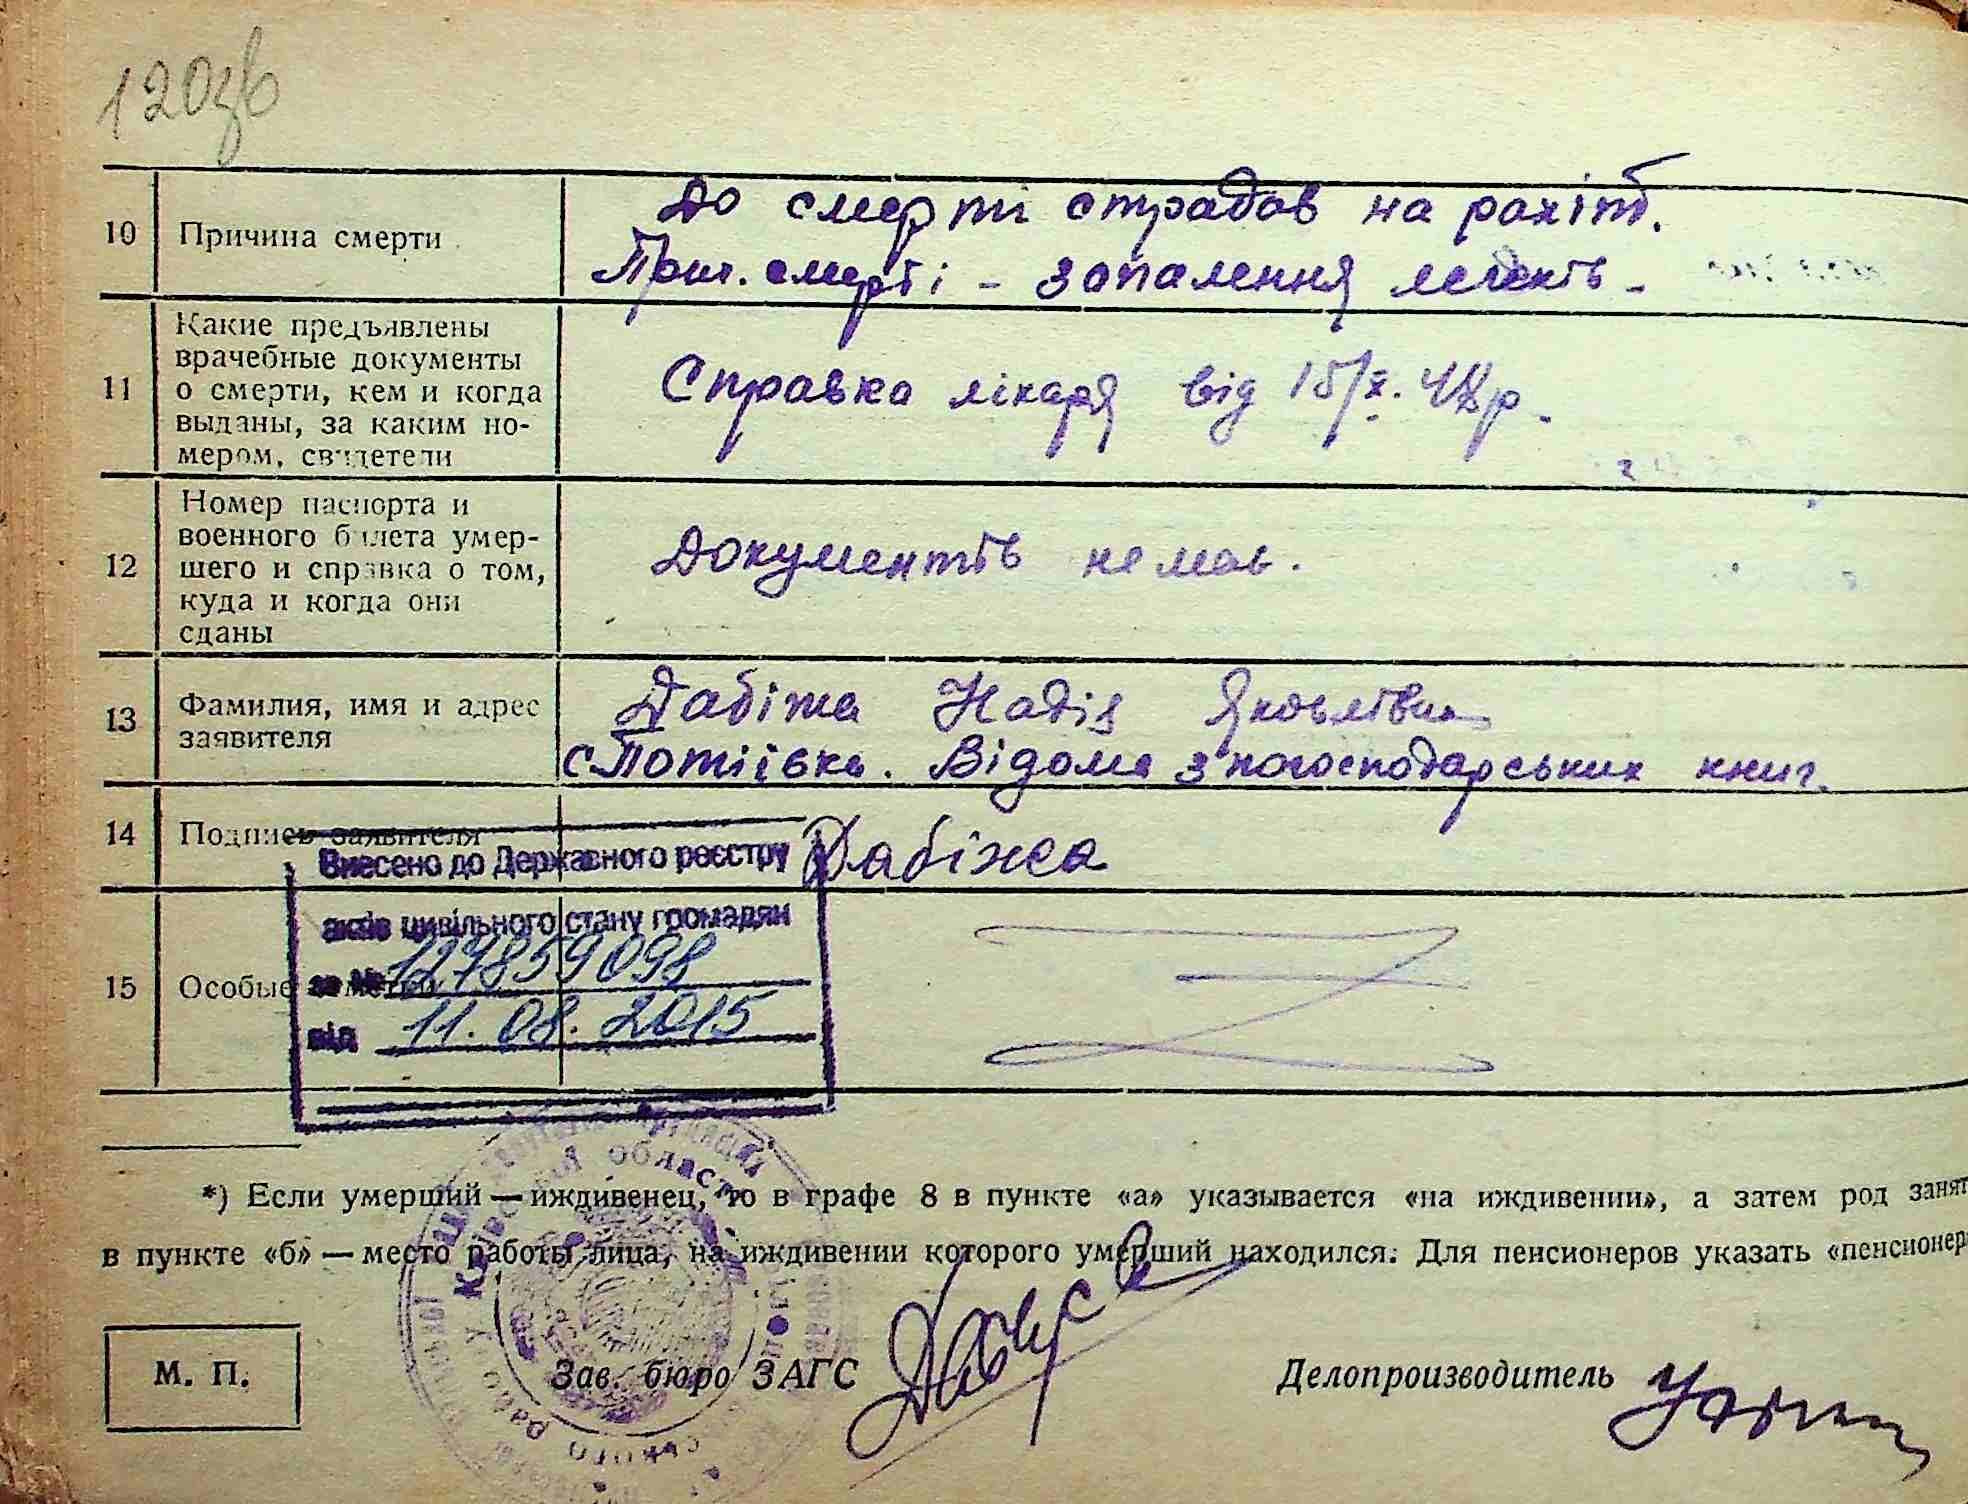 120зв
10 Причина смерти
До смерті страдав на рахіт.
Прич. смерті - запалення легенів -
11 Какие предъявлены
врачебные документы
о смерти, кем и когда
выданы, за каким но-
мером, свидетели
Справка лікаря від 15/X. 48р.
12 Номер паспорта и
военного билета умер-
шего и справка о том,
куда и когда они
сданы
Документів не мав.
13 Фамилия, имя и адрес
заявителя
Дабіжа Надія Яковлівна
с Потіївка. Відома з погосподарських книг.
14 Подпись заявителя
Дабіжа
Внесено до Державного реєстру
актів цивільного стану громадян
за № 127859098
від 11.08.2015
15 Особые отметки
*) Если умерший — иждивенец, то в графе 8 в пункте «а» указывается «на иждивении», а затем род занят
в пункте «б» — место работы лица, на иждивении которого умерший находился. Для пенсионеров указать «пенсионер
М. П.
Зав. бюро ЗАГС
Делопроизводитель